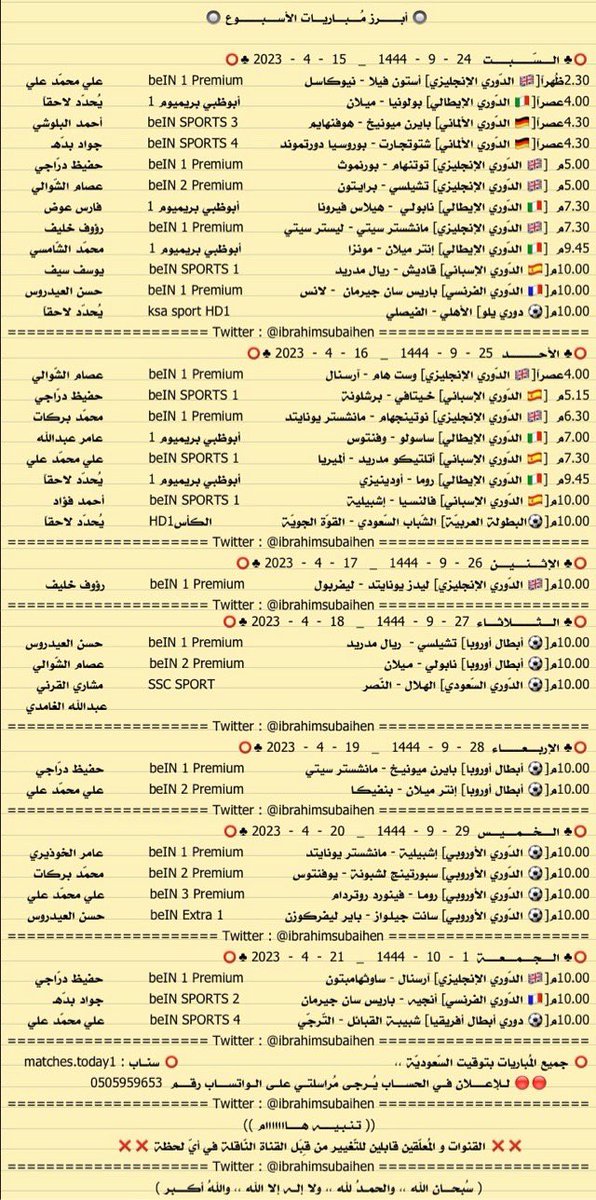 🔘 أبـــرز مُـبـــاريـــات الأســـبـــوع 🔘
⭕♣ الـسّـــبـــت 24 - 9 - 1444 _ 15 - 4 - 2023 ♣⭕
2.30ظُهراً[🇬🇧 الدّوري الإنجليزي] أستون فيلا - نيوكاسل beIN 1 Premium علي محمّد علي
4.00عصراً[🇮🇹 الدّوري الإيطالي] بولونيا - ميلان أبوظبي بريميوم 1 يُحدّد لاحقاً
4.30عصراً[🇩🇪 الدّوري الألماني] بايرن ميونيخ - هوفنهايم beIN SPORTS 3 أحمد البلوشي
4.30عصراً[🇩🇪 الدّوري الألماني] شتوتجارت - بوروسيا دورتموند beIN SPORTS 4 جواد بدّه
5.00م [🇬🇧 الدّوري الإنجليزي] توتنهام - بورنموث beIN 1 Premium حفيظ درّاجي
5.00م [🇬🇧 الدّوري الإنجليزي] تشيلسي - برايتون beIN 2 Premium عصام الشّوالي
7.30م [🇮🇹 الدّوري الإيطالي] نابولي - هيلاس فيرونا أبوظبي بريميوم 1 فارس عوض
7.30م [🇬🇧 الدّوري الإنجليزي] مانشستر سيتي - ليستر سيتي beIN 1 Premium رؤوف خليف
9.45م [🇮🇹 الدّوري الإيطالي] إنتر ميلان - مونزا أبوظبي بريميوم 1 محمّد الشّامسي
10.00م[🇪🇸 الدّوري الإسباني] قاديش - ريال مدريد beIN SPORTS 1 يوسف سيف
10.00م[🇫🇷 الدّوري الفرنسي] باريس سان جيرمان - لانس beIN 1 Premium حسن العيدروس
10.00م[⚽ دوري يلو] الأهلي - الفيصلي ksa sport HD1 يُحدّد لاحقاً
===================== Twitter : @ibrahimsubaihen ======================
⭕♣ الأحـــــد 25 - 9 - 1444 _ 16 - 4 - 2023 ♣⭕
4.00عصراً[🇬🇧 الدّوري الإنجليزي] وست هام - أرسنال beIN 1 Premium عصام الشّوالي
5.15م [🇪🇸 الدّوري الإسباني] خيتافي - برشلونة beIN SPORTS 1 حفيظ درّاجي
6.30م [🇬🇧 الدّوري الإنجليزي] نوتينجهام - مانشستر يونايتد beIN 1 Premium محمّد بركات
7.00م [🇮🇹 الدّوري الإيطالي] ساسولو - وفنتوس أبوظبي بريميوم 1 عامر عبدالله
7.30م [🇪🇸 الدّوري الإسباني] أتلتيكو مدريد - ألميريا beIN SPORTS 1 علي محمّد علي
9.45م [🇮🇹 الدّوري الإيطالي] روما - أودينيزي أبوظبي بريميوم 1 يُحدّد لاحقاً
10.00م[🇪🇸 الدّوري الإسباني] فالنسيا - إشبيلية beIN SPORTS 1 أحمد فؤاد
10.00م[⚽البطولة العربيّة] الشّباب السّعودي - القوّة الجويّة الكأسHD1 يُحدّد لاحقاً
===================== Twitter : @ibrahimsubaihen ======================
⭕♣ الإثـنـــيـــن 26 - 9 - 1444 _ 17 - 4 - 2023 ♣⭕
10.00م[🇬🇧 الدّوري الإنجليزي] ليدز يونايتد - ليفربول beIN 1 Premium رؤوف خليف
===================== Twitter : @ibrahimsubaihen ======================
⭕♣ الـثـــلـــاثـــاء 27 - 9 - 1444 _ 18 - 4 - 2023 ♣⭕
10.00م[⚽ أبطال أوروبا] تشيلسي - ريال مدريد beIN 1 Premium حسن العيدروس
10.00م[⚽ أبطال أوروبا] نابولي - ميلان beIN 2 Premium عصام الشّوالي
10.00م[⚽ الدّوري السّعودي] الهلال - النّصر SSC SPORT مشاري القرني
عبدالله الغامدي
===================== Twitter : @ibrahimsubaihen ======================
⭕♣ الإربـعـــــاء 28 - 9 - 1444 _ 19 - 4 - 2023 ♣⭕
10.00م[⚽ أبطال أوروبا] بايرن ميونيخ - مانشستر سيتي beIN 1 Premium حفيظ درّاجي
10.00م[⚽ أبطال أوروبا] إنتر ميلان - بنفيكا beIN 2 Premium علي محمّد علي
===================== Twitter : @ibrahimsubaihen ======================
⭕♣ الـخـمـــيـــس 29 - 9 - 1444 _ 20 - 4 - 2023 ♣⭕
10.00م[⚽ الدّوري الأوروبي] إشبيلية - مانشستر يونايتد beIN 1 Premium عامر الخوذيري
10.00م[⚽ الدّوري الأوروبي] سبورتينج لشبونة - يوفنتوس beIN 2 Premium محمّد بركات
10.00م[⚽ الدّوري الأوروبي] روما - فينورد روتردام beIN 3 Premium علي محمّد علي
10.00م[⚽ الدّوري الأوروبي] سانت جيلواز - باير ليفركوزن beIN Extra 1 حسن العيدروس
===================== Twitter : @ibrahimsubaihen =====================
⭕♣ الـجـمـعـــــة 1 - 10 - 1444 _ 21 - 4 - 2023 ♣⭕
10.00م[🇬🇧 الدّوري الإنجليزي] أرسنال - ساوثهامبتون beIN 1 Premium حفيظ درّاجي
10.00م[🇫🇷 الدّوري الفرنسي] أنجيه - باريس سان جيرمان beIN SPORTS 2 جواد بدّه
10.00م[⚽ دوري أبطال أفريقيا] شبيبة القبائل - التّرجّي beIN SPORTS 4 علي محمّد علي
===================== Twitter : @ibrahimsubaihen ======================
⭕ جميع المُباريات بتوقيت السّعوديّة ،، ⭕ سناب : matches.today1
🔴🔴 للإعلان في الحساب يُـرجى مُراسلتي على الواتساب رقـم 0505959653
===================== Twitter : @ibrahimsubaihen ======================
(( تـنـبـيـه هـــااااااام ))
❌❌ القنوات و المُعلّقين قابلين للتّغيير من قِبَل القناة النّاقلة في أيّ لحظة ❌❌
===================== Twitter : @ibrahimsubaihen ======================
( سُبحـان الله ،، والحمـدُ للّه ،، ولا إلـه إلا الله ،، واللهُ أكـبـر )